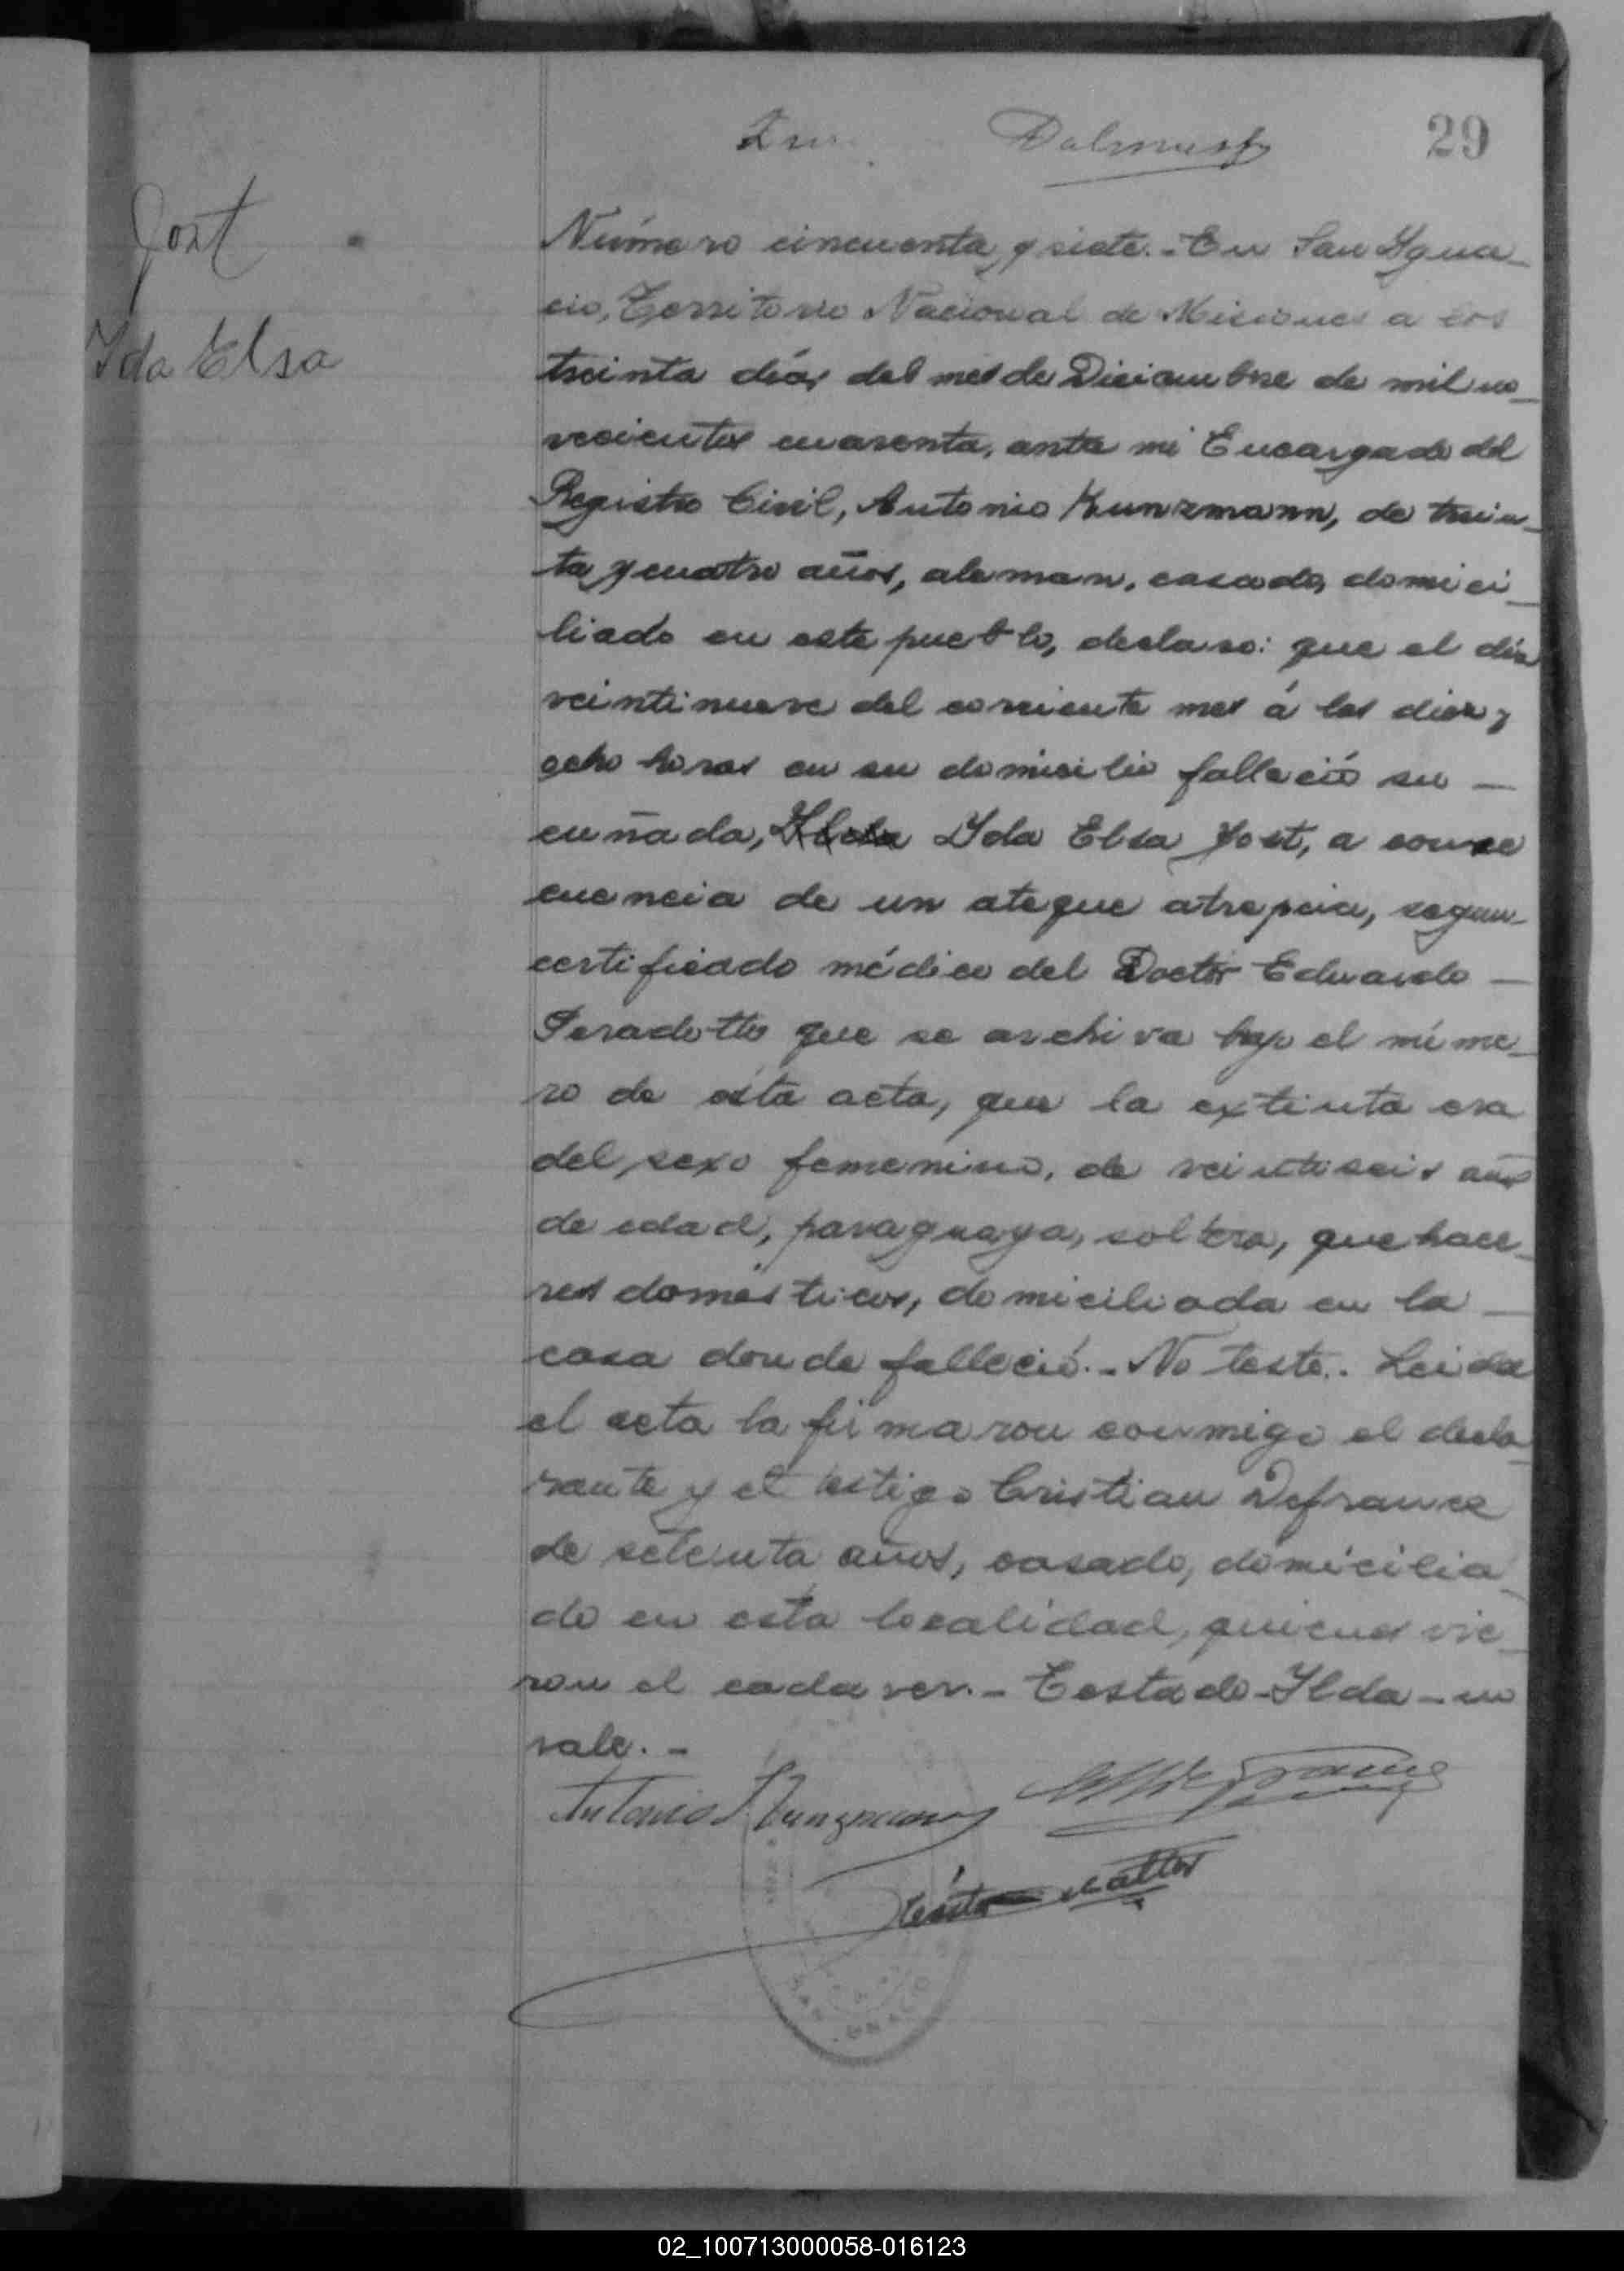 29
Jost
Ida Elsa
Número cincuenta y siete.- En San Ygna-
cio, Territorio Nacional de Misiones a los
treinta días del mes de Diciembre de mil no-
vecientos cuarenta, ante mi Encargado del
Registro Civil, Antonio Kunzmann, de trein-
ta y cuatro años, aleman, casado, domici-
liado en este pueblo, declaro: que el día
veintinueve del corriente mes á las diez y
ocho horas en su domicilio falleció su -
cuñada, Ylda Yda Elsa Jost, a conse
cuencia de un ataque atrepcia, segun-
certificado médico del Doctor Eduardo -
que se archiva bajo el núme-
ro de esta acta, que la extinta era
del sexo femenino, de veintiseis años
de edad, paraguaya, soltera, quehace-
res domésticos, domiciliada en la -
casa donde falleció.- No testó.. Leida
el acta la firmaron conmigo el decla-
rante y el testigo Cristian Defrance
de setenta años, casado, domicilia-
do en esta localidad, quienes vie-
ron el cadaver.- Testado-Ylda-no
vale.-
Antonio Kunzmann
02_100713000058-016123